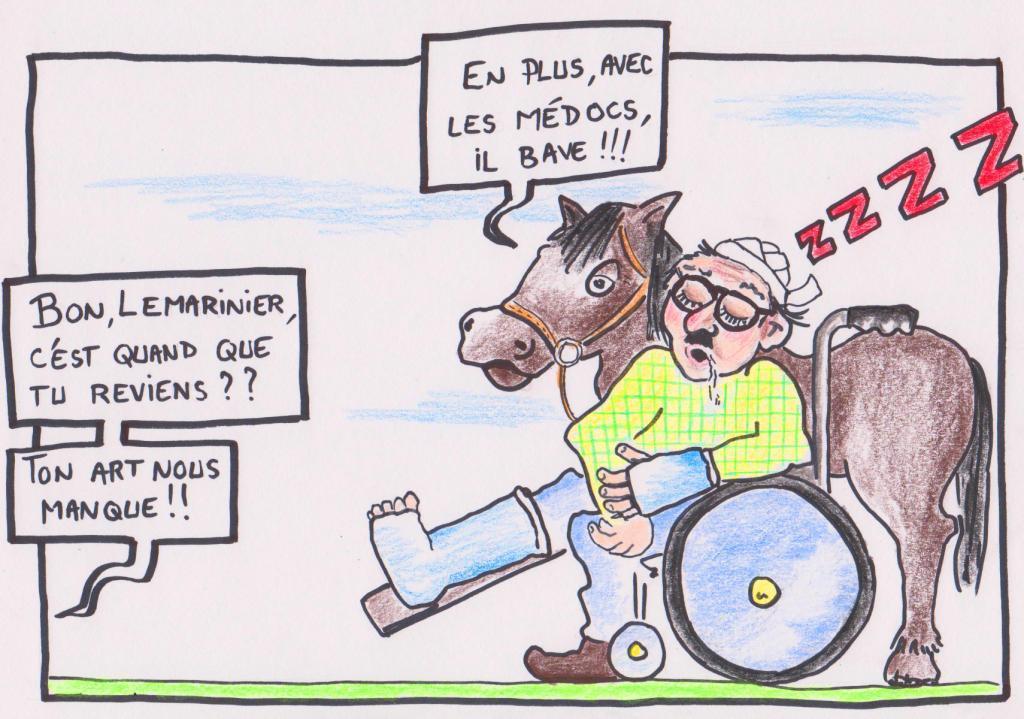 BON, LEMARINIER,
C'ÉST QUAND QUE
TU REVIENS ??
TON ART NOUS
MANQUE !!
EN PLUS, AVEC
LES MÉDOCS,
iL BAVE !!!
ZZZZ